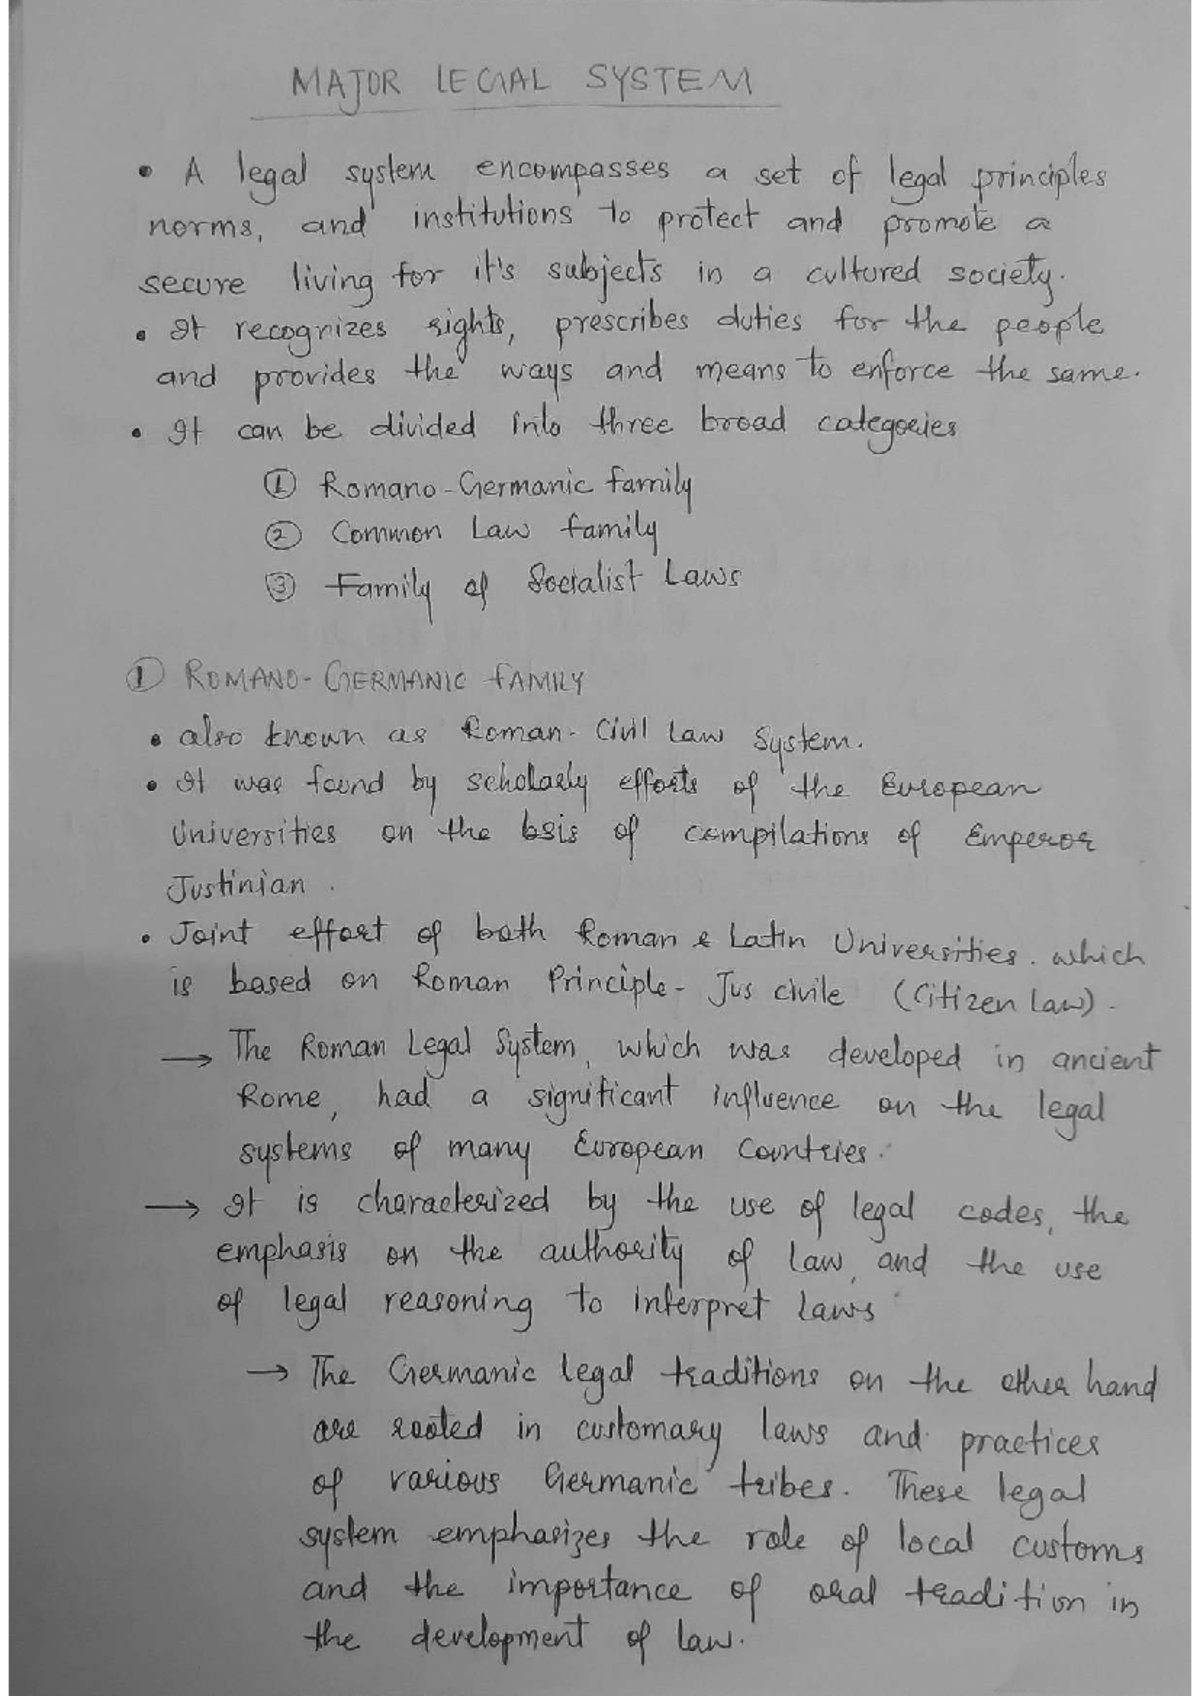 MAJOR LEGAL SYSTEM
• A legal system encompasses a set of legal principles
norms, and institutions to protect and promote a
secure living for it's subjects in a cultured society.
• It recognizes rights, prescribes duties for the people
and provides the ways and means to enforce the same.
• It can be divided into three broad categories
① Romano-Germanic family
② Common Law family
③ Family of Socialist Laws
① ROMANO-GERMANIC FAMILY
• also known as Roman-Civil Law System.
• It was found by scholarly efforts of the European
Universities on the bsis of compilations of Emperor
Justinian.
• Joint effort of both Roman & Latin Universities. which
is based on Roman Principle- Jus civile (Citizen law).
→ The Roman Legal System, which was developed in ancient
Rome, had a significant influence on the legal
systems of many European Countries.
→ It is characterized by the use of legal codes, the
emphasis on the authority of law, and the use
of legal reasoning to interpret laws
→ The Germanic legal traditions on the other hand
are rooted in customary laws and practices
of various Germanic tribes. These legal
system emphasizes the role of local customs
and the importance of oral tradition in
the development of law.